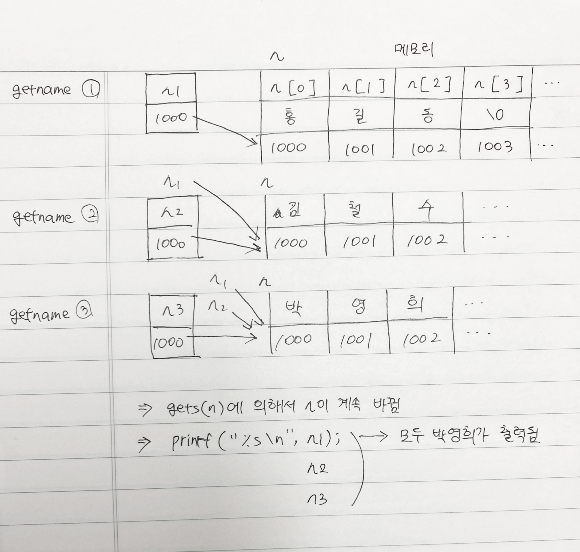 n 메모리
getname ① n1 n[0] n[1] n[2] n[3] ...
1000 홍 길 동 \0
1000 1001 1002 1003 ...
n1 n
getname ② n2 김 철 수 ...
1000 1000 1001 1002 ...
n1 n
getname ③ n3 n2 박 영 희 ...
1000 1000 1001 1002 ...
⇒ gets(n)에 의해서 n이 계속 바뀜
⇒ printf("%s\n", n1); → 모두 박영희가 출력됨
n2
n3